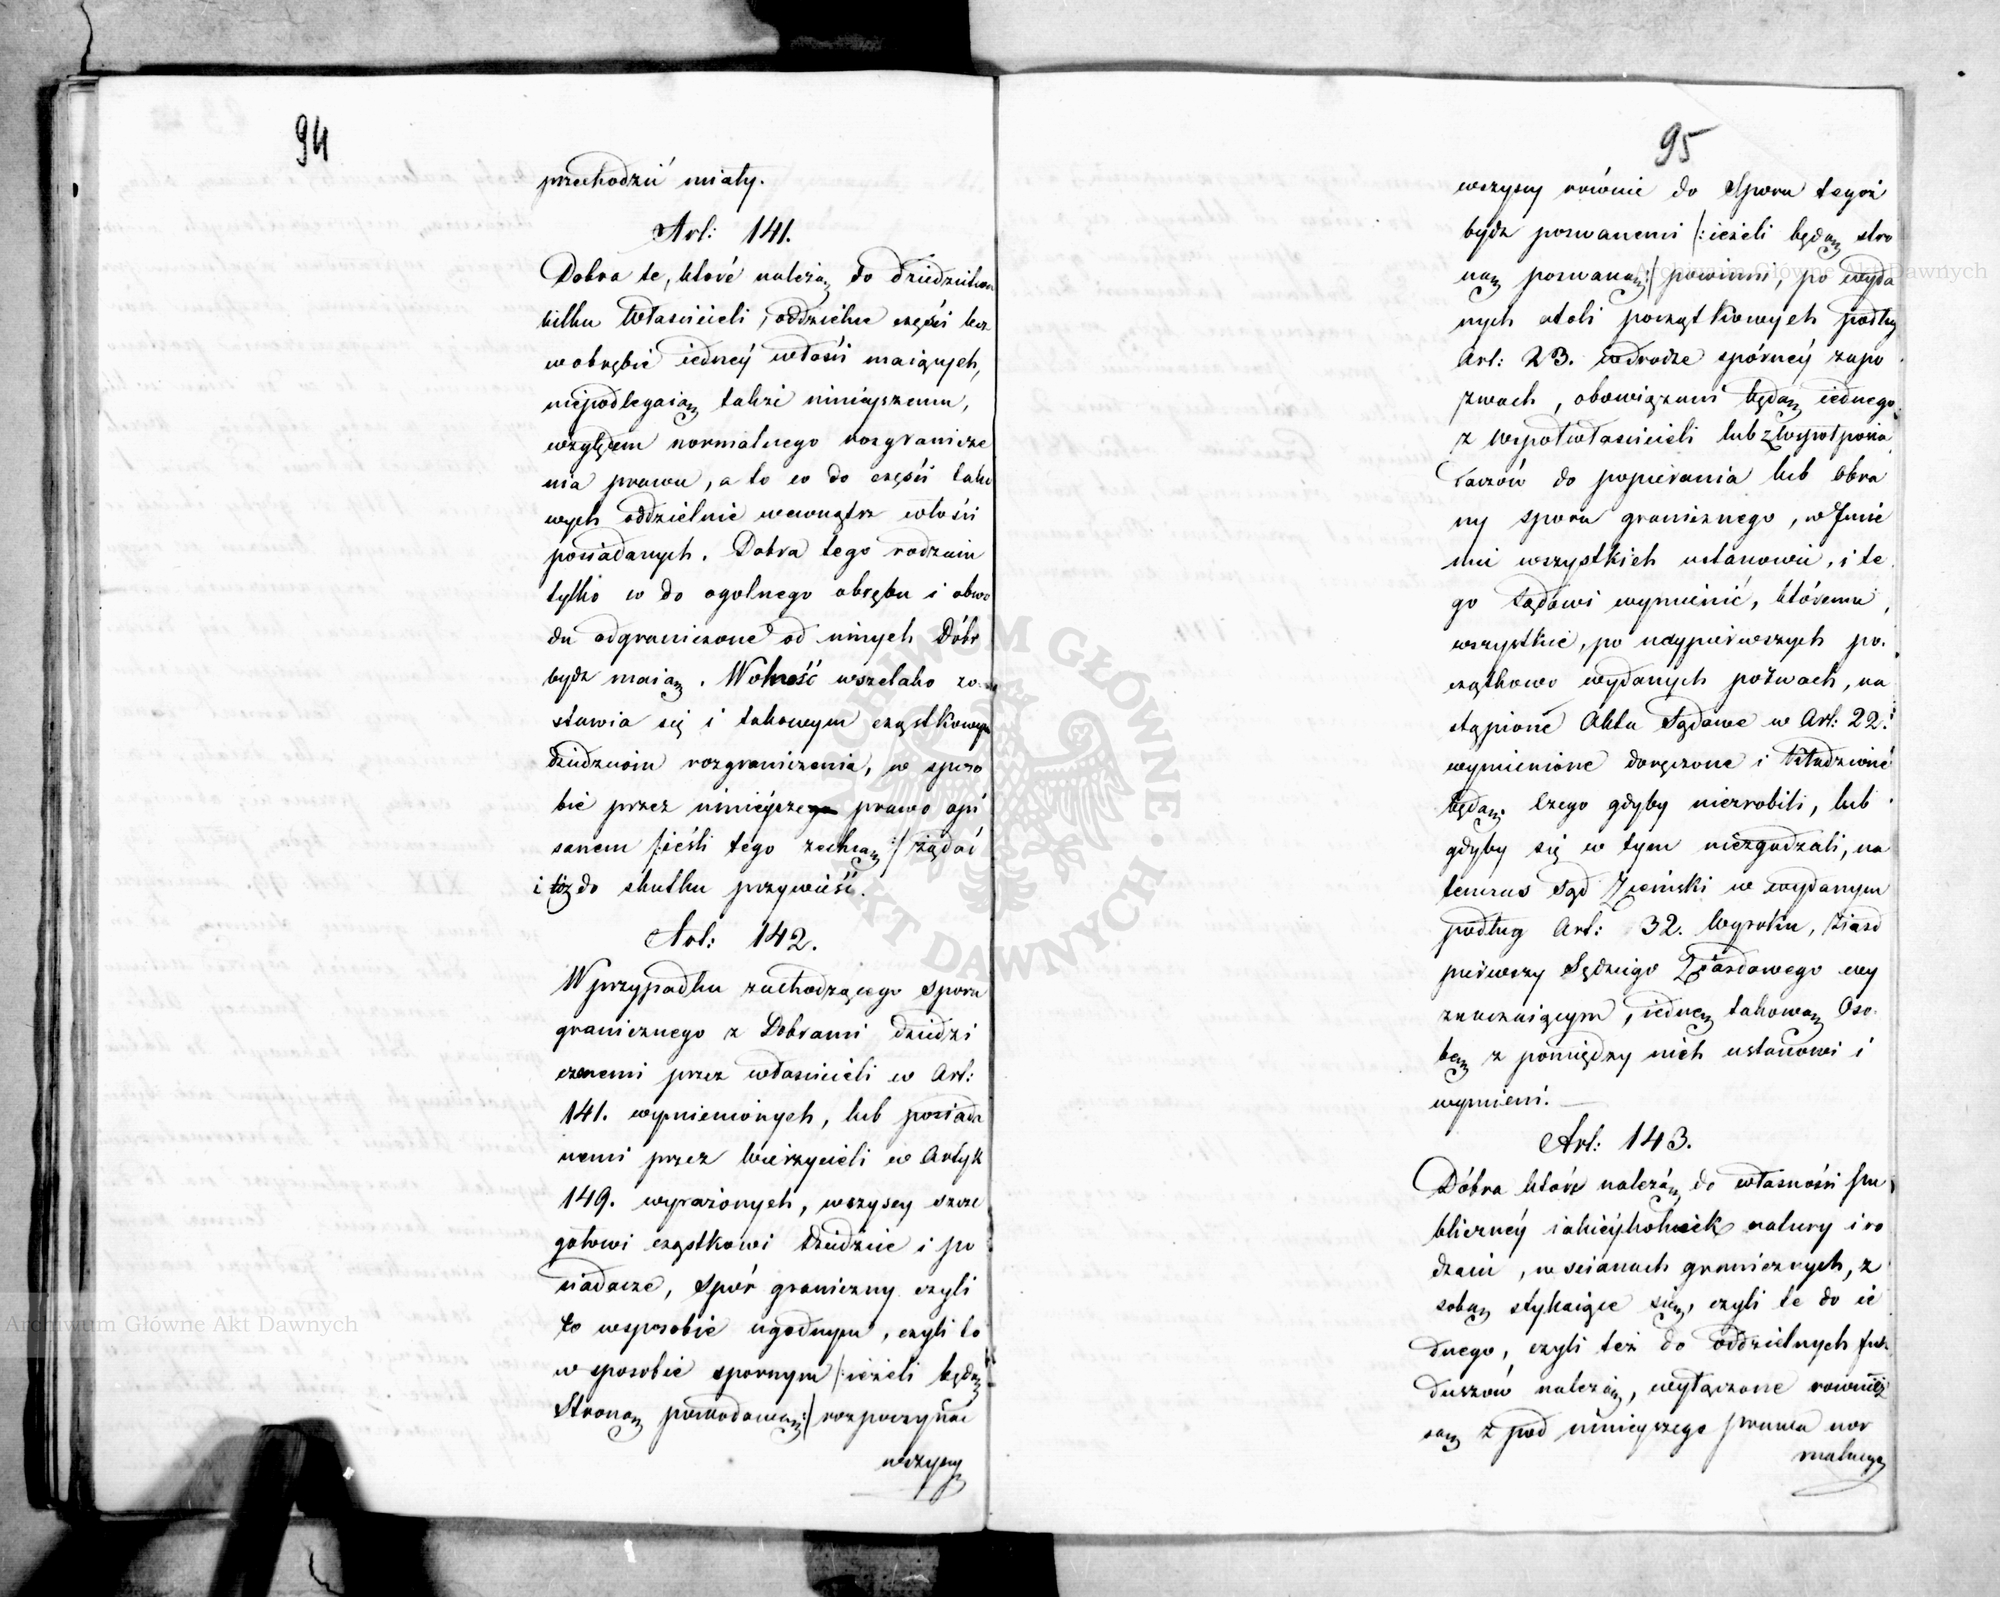 94
przechodzić miały.
Art: 141.
Dobra te, które należą do dziedzictwa
kilku Właścicieli, oddzielne części lecz
w obrębie iedney włości maiących,
niepodlegaią także ninieyszemu,
względem normalnego rozgranicze
nia prawu, a to co do części tako
wych oddzielnie wewnątrz włości
posiadanych. Dobra tego rodzaiu
tylko co do ogolnego obrębu i obwo
du odgraniczone od innych Dóbr
bydz maią. Wolność wszelako zo
stawia się i takowym cząstkowym
dziedzicom rozgraniczenia, w sposo
bie przez ninieysze prawo opi
sanem /:ieśli tego zechcą:/ żądać
i też do skutku przywieść.
Art: 142.
W przypadku zachodzącego sporu
granicznego z Dobrami dziedzi
cznemi przez właścicieli w Art:
141. wymienionych, lub posiada
nemi przez Wierzycieli w Artyk
149. wyrażonych, wszyscy szcze
gołowi cząstkowi dziedzice i po
siadacze, spór graniczny czyli
to wsposobie ugodnym, czyli to
w sposobie spornym /:ieżeli będą
Stroną powodową:/ rozpoczynać
wszyscy
95
wszyscy równie do Sporu tegoż
bydz pozwanemi /:ieżeli będą stro
ną pozwaną:/ powinni, po wyda
nych atoli początkowych podług
Art: 23. wdrodze spórney zapo
zwach, obowiązani będą iednego
z wspołwłaścicieli lub z wspołposia
daczów do popierania lub obro
ny sporu granicznego, w Imie
niu wszystkich ustanowić, i te
go Sądowi wymienić, któremu
wszystkie, po naypierwszych po
czątkowo wydanych pozwach, na
stąpione Akta Sądowe w Art: 22.
wymienione doręczone i
będą. Czego gdyby niezrobili, lub
gdyby się w tym niezgadzali, na
tenczas Sąd Ziemski w wydanym
podług Art: 32. Wyroku, Ziazd
pierwszy Sędziego Ziazdowego wy
znaczaiącym, iedną takową Oso
bę z pomiędzy nich ustanowi i
wymieni.
Art: 143.
Dóbra które należą do własności pu
bliczney iakieykolwiek natury i ro
dzaiu, w scianach granicznych, z
sobą stykaiące się, czyli te do ie
dnego, czyli też do oddzielnych fun
duszów należą, wyłączone również
są z pod ninieyszego prawa nor
malnego
Archiwum Główne Akt Dawnych
Archiwum Główne Akt Dawnych
ARCHIWUM GŁÓWNE AKT DAWNYCH